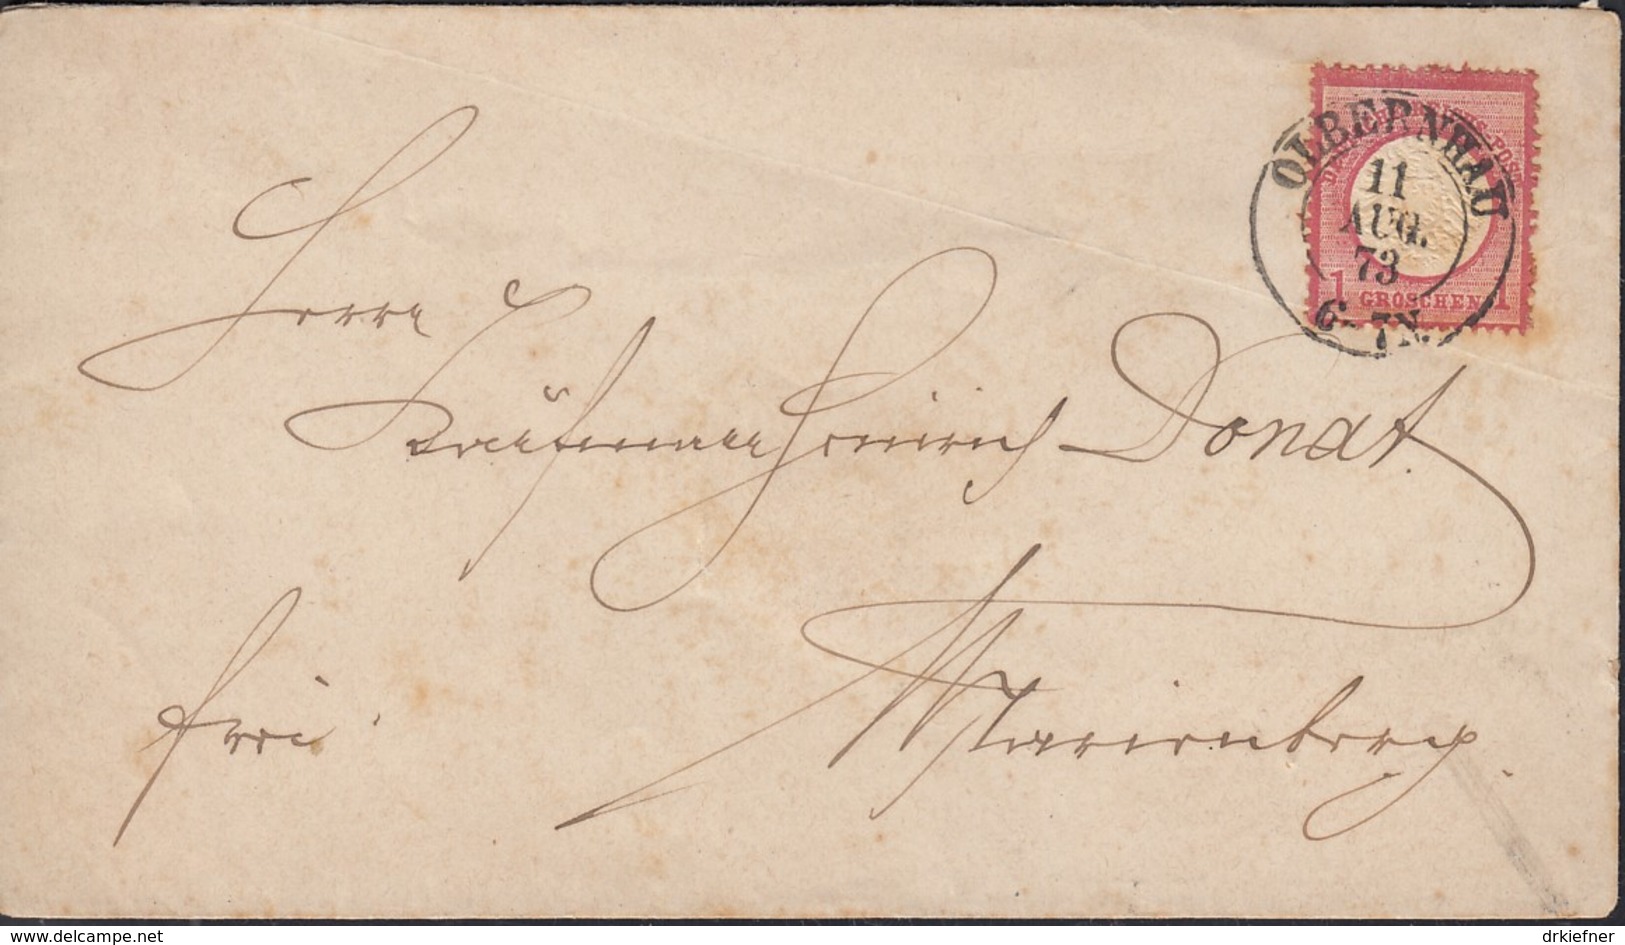 OLBERNHAU
11
AUG.
73
6-7N.
DEUTSCHE REICHS-POST
1 GROSCHEN 1
Herrn
Kaufmann Heinrich Donat.
frei
Marienberg.
www.delcampe.net
drkiefner